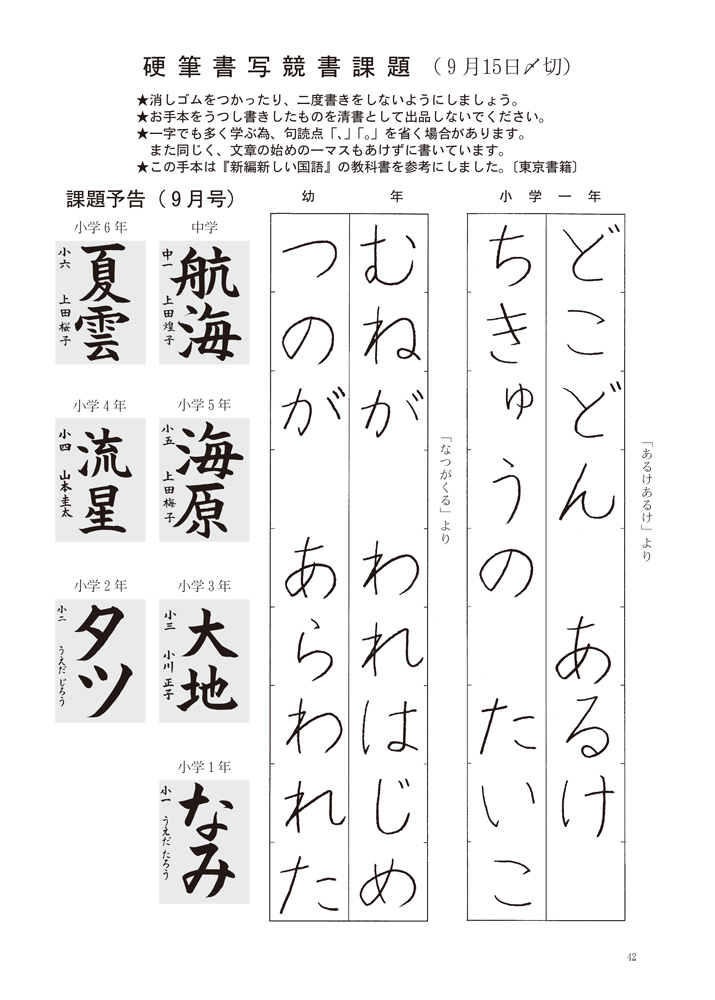 硬筆書写競書課題（9月15日〆切）
★消しゴムをつかったり、二度書きをしないようにしましょう。
★お手本をうつし書きしたものを清書として出品しないでください。
★一字でも多く学ぶ為、句読点「、」「。」を省く場合があります。
また同じく、文章の始めの一マスもあけずに書いています。
★この手本は『新編新しい国語』の教科書を参考にしました。〔東京書籍〕
小学一年
どこどん あるけ
ちきゅうの たいこ
「あるけあるけ」より
幼年
むねが われはじめ
つのが あらわれた
「なつがくる」より
課題予告（9月号）
中学
航海
中一 上田煌子
小学6年
夏雲
小六 上田桜子
小学5年
海原
小五 上田梅子
小学4年
流星
小四 山本圭太
小学3年
大地
小三 小川正子
小学2年
タツ
小二 うえだじろう
小学1年
なみ
小一 うえだたろう
42